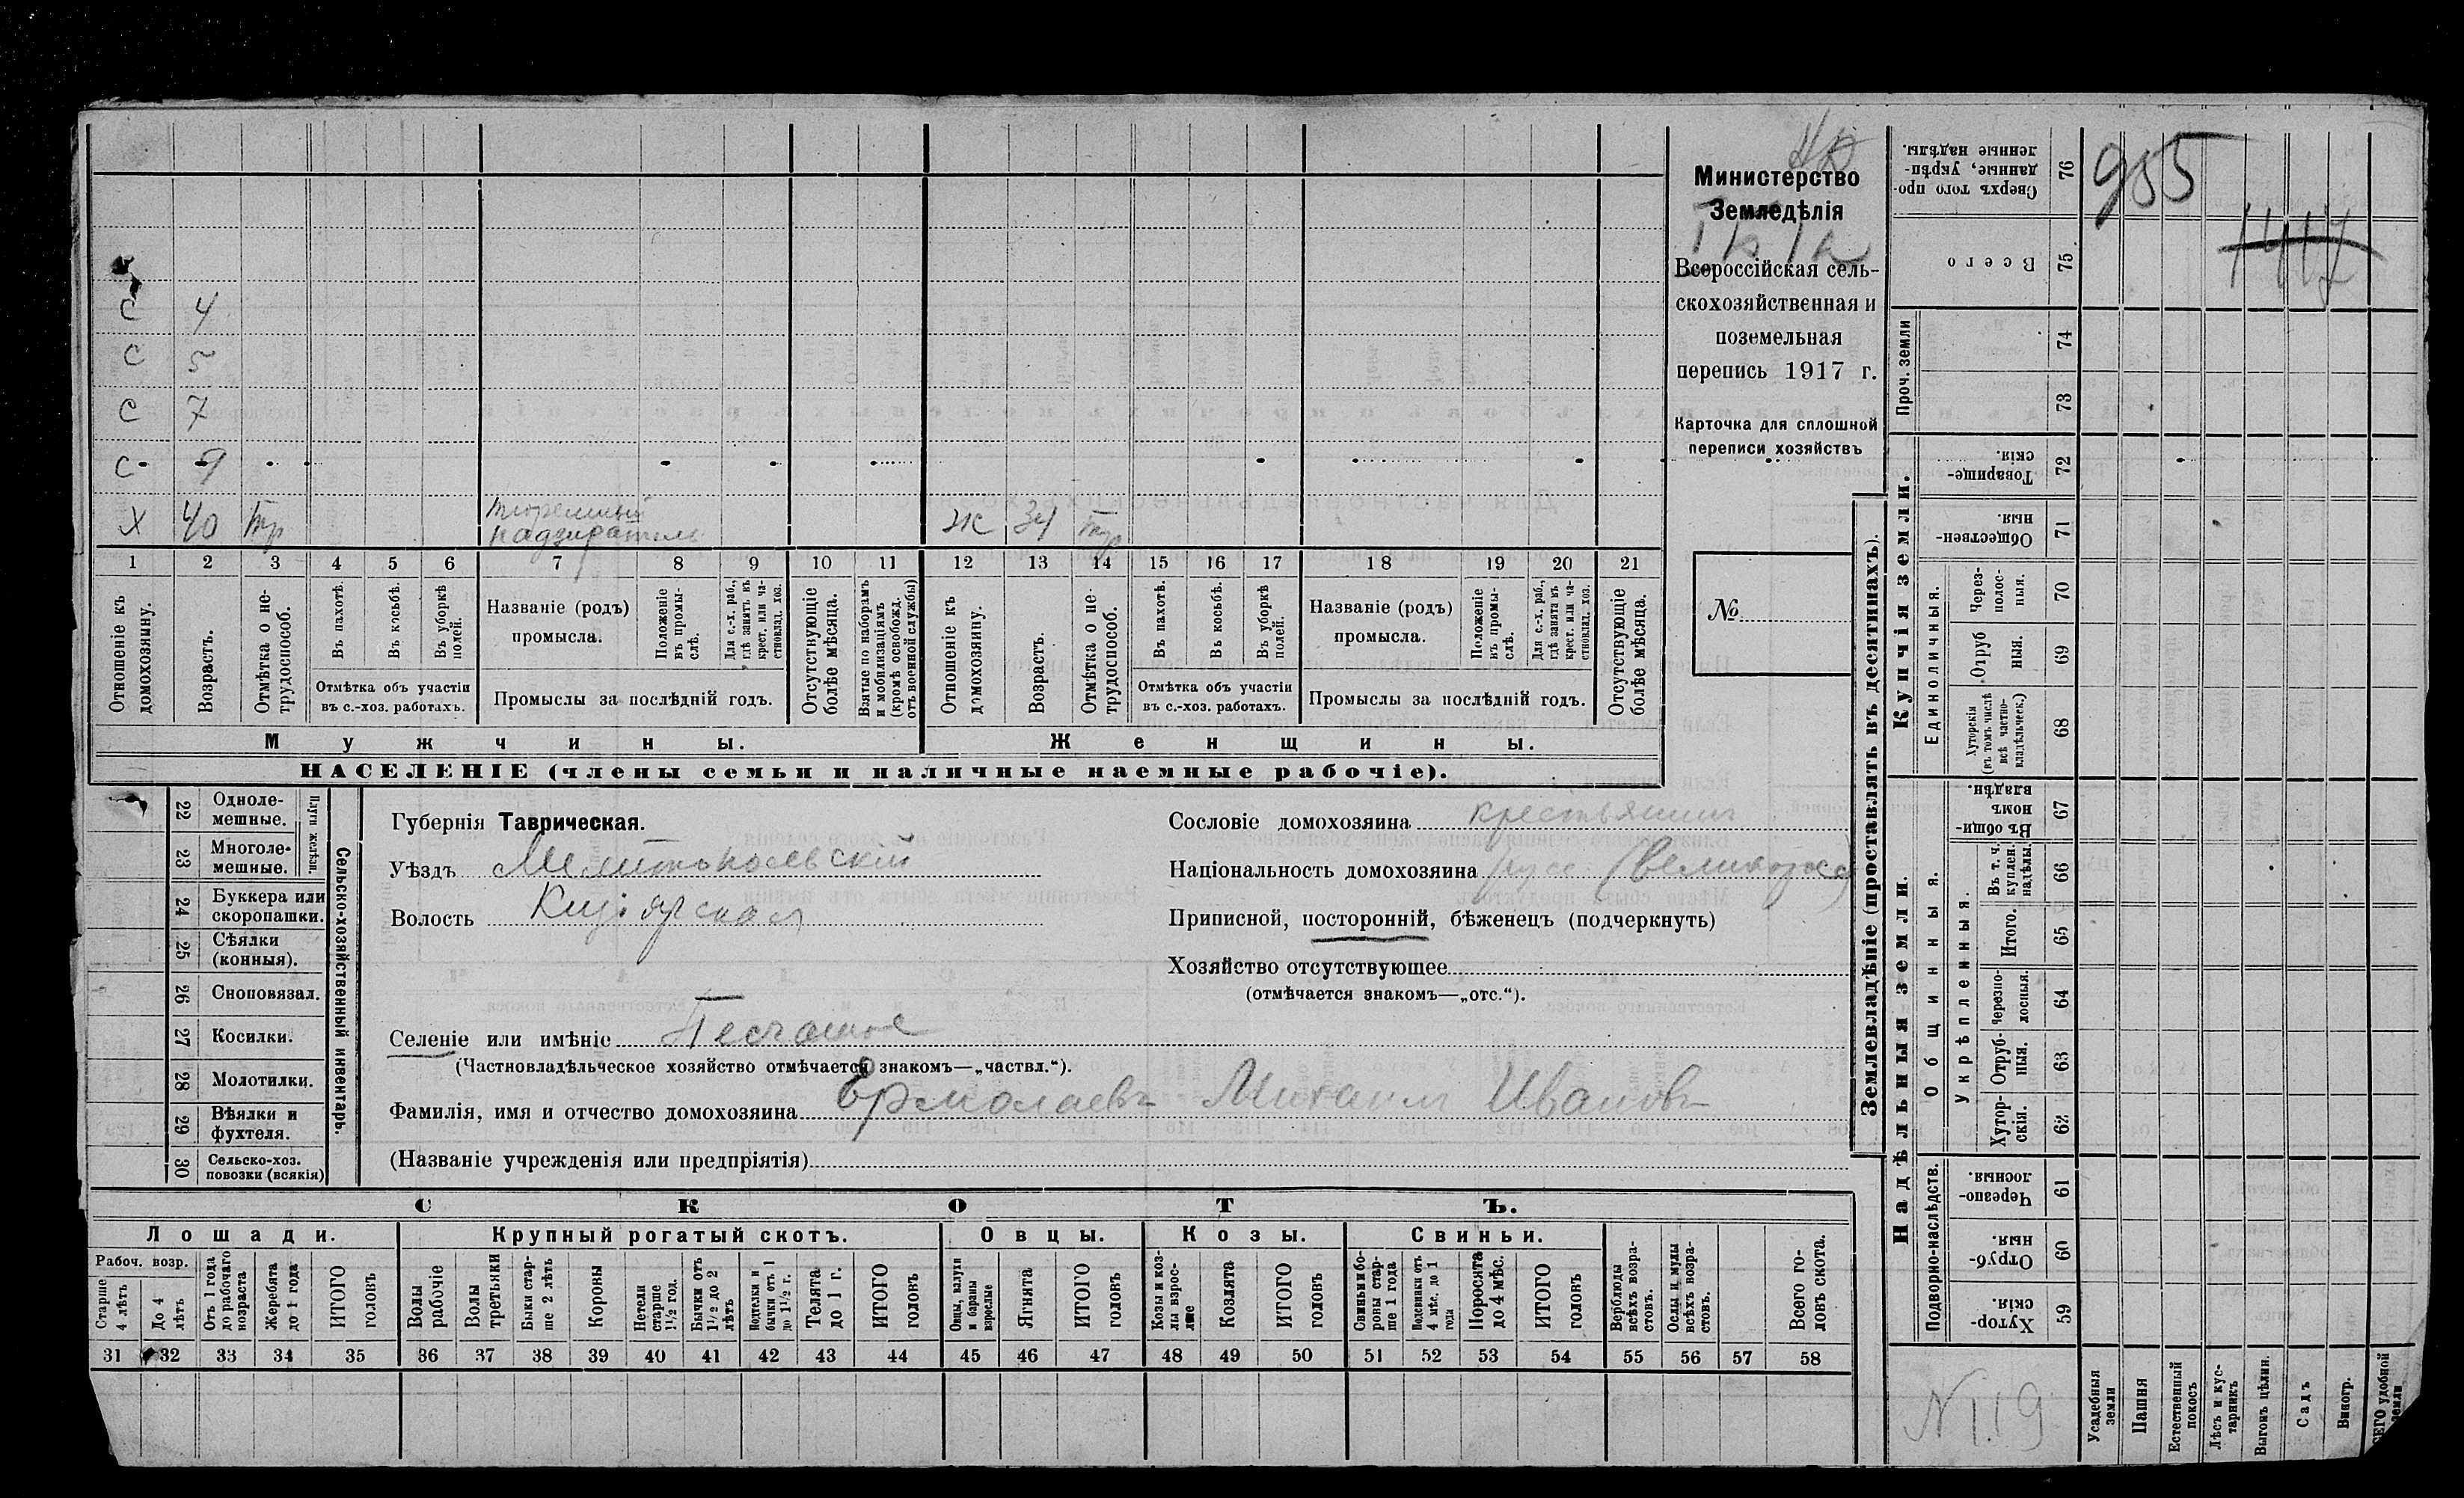 С 4
С 5
С 7
С 9
Х 40 тр тюремный надзиратель Ж 34 тр
1 2 3 4 5 6 7 8 9 10 11 12 13 14 15 16 17 18 19 20 21
Отношеніе къ домохозяину.
Возрастъ.
Отмѣтка о нетрудоспособ.
Въ пахотѣ.
Въ косьбѣ.
Въ уборкѣ полей.
Отмѣтка объ участіи
въ с.-хоз. работахъ.
Названіе (родъ)
промысла.
Положеніе въ промыслѣ.
Для с.-х. раб., гдѣ занятъ въ крест. или частновлад. хоз.
Промыслы за послѣдній годъ.
Отсутствующіе болѣе мѣсяца.
Взятые по наборамъ и мобилизаціямъ (кромѣ освобожд. отъ военной службы)
Отношеніе къ домохозяину.
Возрастъ.
Отмѣтка о нетрудоспособ.
Въ пахотѣ.
Въ косьбѣ.
Въ уборкѣ полей.
Отмѣтка объ участіи
въ с.-хоз. работахъ.
Названіе (родъ)
промысла.
Положеніе въ промыслѣ.
Для с.-х. раб., гдѣ занята въ крест. или частновлад. хоз.
Промыслы за послѣдній годъ.
Отсутствующіе болѣе мѣсяца.
Мужчины.
Женщины.
НАСЕЛЕНІЕ (члены семьи и наличные наемные рабочіе).
Министерство
Земледѣлія
Всероссійская сель-
скохозяйственная и
поземельная
перепись 1917 г.
Карточка для сплошной
переписи хозяйствъ
№
22 Одноле-
мешные.
23 Многоле-
мешные.
Плуги желѣзн.
24 Буккера или
скоропашки.
25 Сѣялки
(конныя).
26 Сноповязал.
27 Косилки.
28 Молотилки.
29 Вѣялки и
фухтеля.
30 Сельско-хоз.
повозки (всякія)
Сельско-хозяйственный инвентарь.
Губернія Таврическая.
Уѣздъ Мелитопольскій
Волость Кизіярская
Селеніе или имѣніе Песчаное
(Частновладѣльческое хозяйство отмѣчается знакомъ—„частвл.“).
Фамилія, имя и отчество домохозяина Ермолаевъ Михаилъ Ивановъ
(Названіе учрежденія или предпріятія)
Сословіе домохозяина крестьянинъ
Національность домохозяина русс (великорос)
Приписной, посторонній, бѣженецъ (подчеркнуть)
Хозяйство отсутствующее
(отмѣчается знакомъ—„отс.“).
СКОТЪ.
Лошади.
Крупный рогатый скотъ.
Овцы.
Козы.
Свиньи.
Рабоч. возр.
Старше 4 лѣтъ
До 4 лѣтъ
Отъ 1 года до рабочаго возраста
Жеребята до 1 года
ИТОГО головъ
Волы рабочіе
Волы третьяки
Быки старше 2 лѣтъ
Коровы
Нетели старше 1½ год.
Бычки отъ 1½ до 2 лѣтъ
Подтелки и бычки отъ 1 до 1½ г.
Телята до 1 г.
ИТОГО головъ
Овцы, валухи и бараны взрослые
Ягнята
ИТОГО головъ
Козы и козлы взрослые
Козлята
ИТОГО головъ
Свиньи и боровы старше 1 года
Подсвинки отъ 4 мѣс. до 1 года
Поросята до 4 мѣс.
ИТОГО головъ
Верблюды всѣхъ возрастовъ.
Ослы и мулы всѣхъ возрастовъ.
Всего головъ скота.
31 32 33 34 35 36 37 38 39 40 41 42 43 44 45 46 47 48 49 50 51 52 53 54 55 56 57 58
Землевладѣніе (проставлять въ десятинахъ).
Сверхъ того проданные, укрѣпленные надѣлы. 76
955
1417
Всего 75
Проч. земли
74
73
Купчія земли.
Товарищескія. 72
Общественныя. 71
Единоличныя.
Черезполосныя. 70
Отрубныя. 69
Хуторскія (въ томъ числѣ всѣ частновладѣльческ.) 68
Надѣльныя земли.
Общинныя.
Въ общинномъ владѣн. 67
Укрѣпленныя.
Въ т. ч. куплен. надѣлы. 66
Итого. 65
Черезполосныя. 64
Отрубныя. 63
Хуторскія. 62
Подворно-наслѣдств.
Черезполосныя. 61
Отрубныя. 60
Хуторскія. 59
Усадебныя земли
Пашня
Естественный покосъ
Лѣсъ и кустарникъ
Выгонъ цѣлин.
Садъ
Виногр.
удобной земли